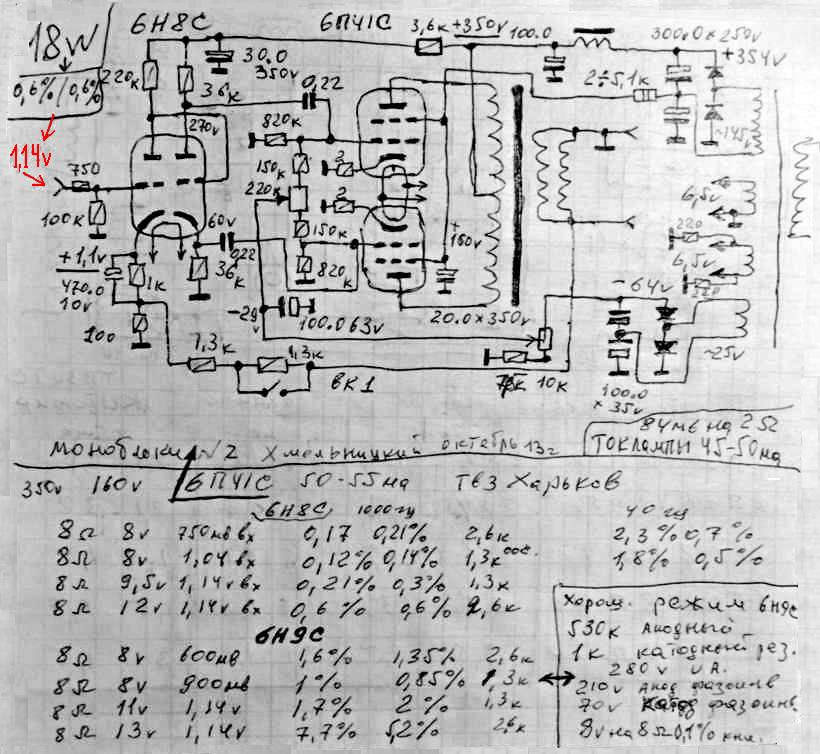 18W
0,6% / 0,6%
1,14v
750
100к
6Н8С
220к
36к
30.0
350v
270v
0,22
820к
150к
220к
150к
820к
2
2
6П41С
3,6к
+350v
100.0
300.0×250v
+354v
2÷5,1к
~145v
6,5v
220
6,5v
220
+
160v
60v
0,22
36к
+1,1v
470.0
10v
1к
100
-29v
100.0 63v
20.0×350v
-64v
~25v
100.0
×35v
10к
7,3к
1,3к
ВК1
84мв на 2Ω
ток лампы 45-50ма
моноблоки №2 Хмельницкий октябрь 13г
350v 160v 6П41С 50-55ма ТВЗ Харьков
6Н8С 1000гц 40гц
8Ω 8v 750мв вх 0,17 0,21% 2,6к 2,3% 0,7%
8Ω 8v 1,04v вх 0,12% 0,14% 1,3к оос. 1,8% 0,5%
8Ω 9,5v 1,14v вх 0,21% 0,3% 1,3к
8Ω 12v 1,14v вх 0,6% 0,6% 2,6к
6Н9С
8Ω 8v 600мв 1,6% 1,35% 2,6к
8Ω 8v 900мв 1% 0,85% 1,3к
8Ω 11v 1,14v 1,7% 2% 1,3к
8Ω 13v 1,14v 7,7% 5,2% 2,6к
Хорош. режим 6Н9С
530к Анодный
1к катодный рез.
280v UA.
210v Анод фазоинв
70v Катод фазоинв
8v на 8Ω 0,1% кни.